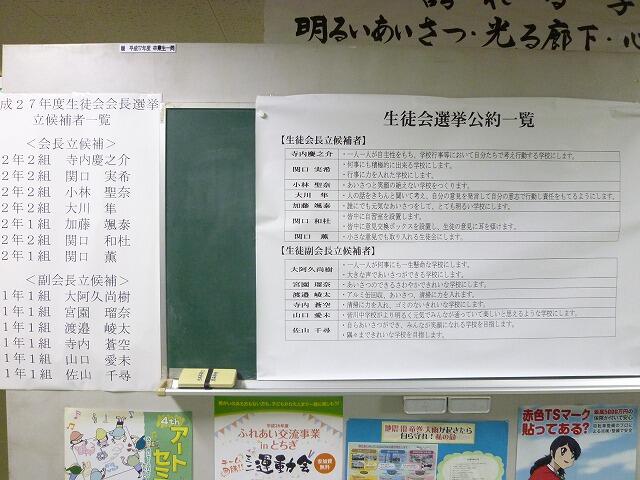 明るいあいさつ・光る廊下・心
贈 平成17年度 卒業生一同
成27年度生徒会会長選挙
立候補者一覧
＜会長立候補＞
2年2組 寺内慶之介
2年2組 関口 実希
2年2組 小林 聖奈
2年2組 大川 隼
2年1組 加藤 颯泰
2年2組 関口 和杜
2年1組 関口 薫
＜副会長立候補＞
1年1組 大阿久尚樹
1年1組 宮園 瑠奈
1年1組 渡邉 崚太
1年1組 寺内 蒼空
1年1組 山口 愛未
1年1組 佐山 千尋
生徒会選挙公約一覧
【生徒会長立候補者】
寺内慶之介 ・一人一人が自主性をもち、学校行事等において自分たちで考え行動する学校にします。
関口 実希 ・何事にも積極的に出来る学校にします。
・行事に力を入れた学校にします。
小林 聖奈 ・あいさつと笑顔の絶えない学校をつくります。
大川 隼 ・人の話をきちんと聞いて考え、自分の意見を発言して自分の意志で行動し責任をもてるようにします。
加藤 颯泰 ・誰にでも元気なあいさつをして、とても明るい学校にします。
関口 和杜 ・校中に自習室を設置します。
・校中に意見交換ボックスを設置し、生徒の意見に耳を傾けます。
関口 薫 ・小さな意見でも取り入れる生徒会にします。
【生徒副会長立候補者】
大阿久尚樹 ・一人一人が何事にも一生懸命な学校にします。
・大きな声であいさつができる学校にします。
宮園 瑠奈 ・あいさつのできるさわやかできれいな学校にします。
渡邉 崚太 ・アルミ缶回収、あいさつ、清掃に力を入れます。
寺内 蒼空 ・清掃に力を入れ、ゴミのないきれいな学校にします。
山口 愛未 ・皆川中学校がより明るく元気でみんなが通っていて楽しいと思えるような学校にします。
佐山 千尋 ・自らあいさつができ、みんなが笑顔になれる学校を目指します。
・隅々まできれいな学校を目指します。
4th
アート
セミ
ふれあい交流事業
inとちぎ
ミニ運動会
参加費
無料
地震・雷・竜巻・大雨が起きたら
自ら守れ!
赤色TSマーク
貼ってある?